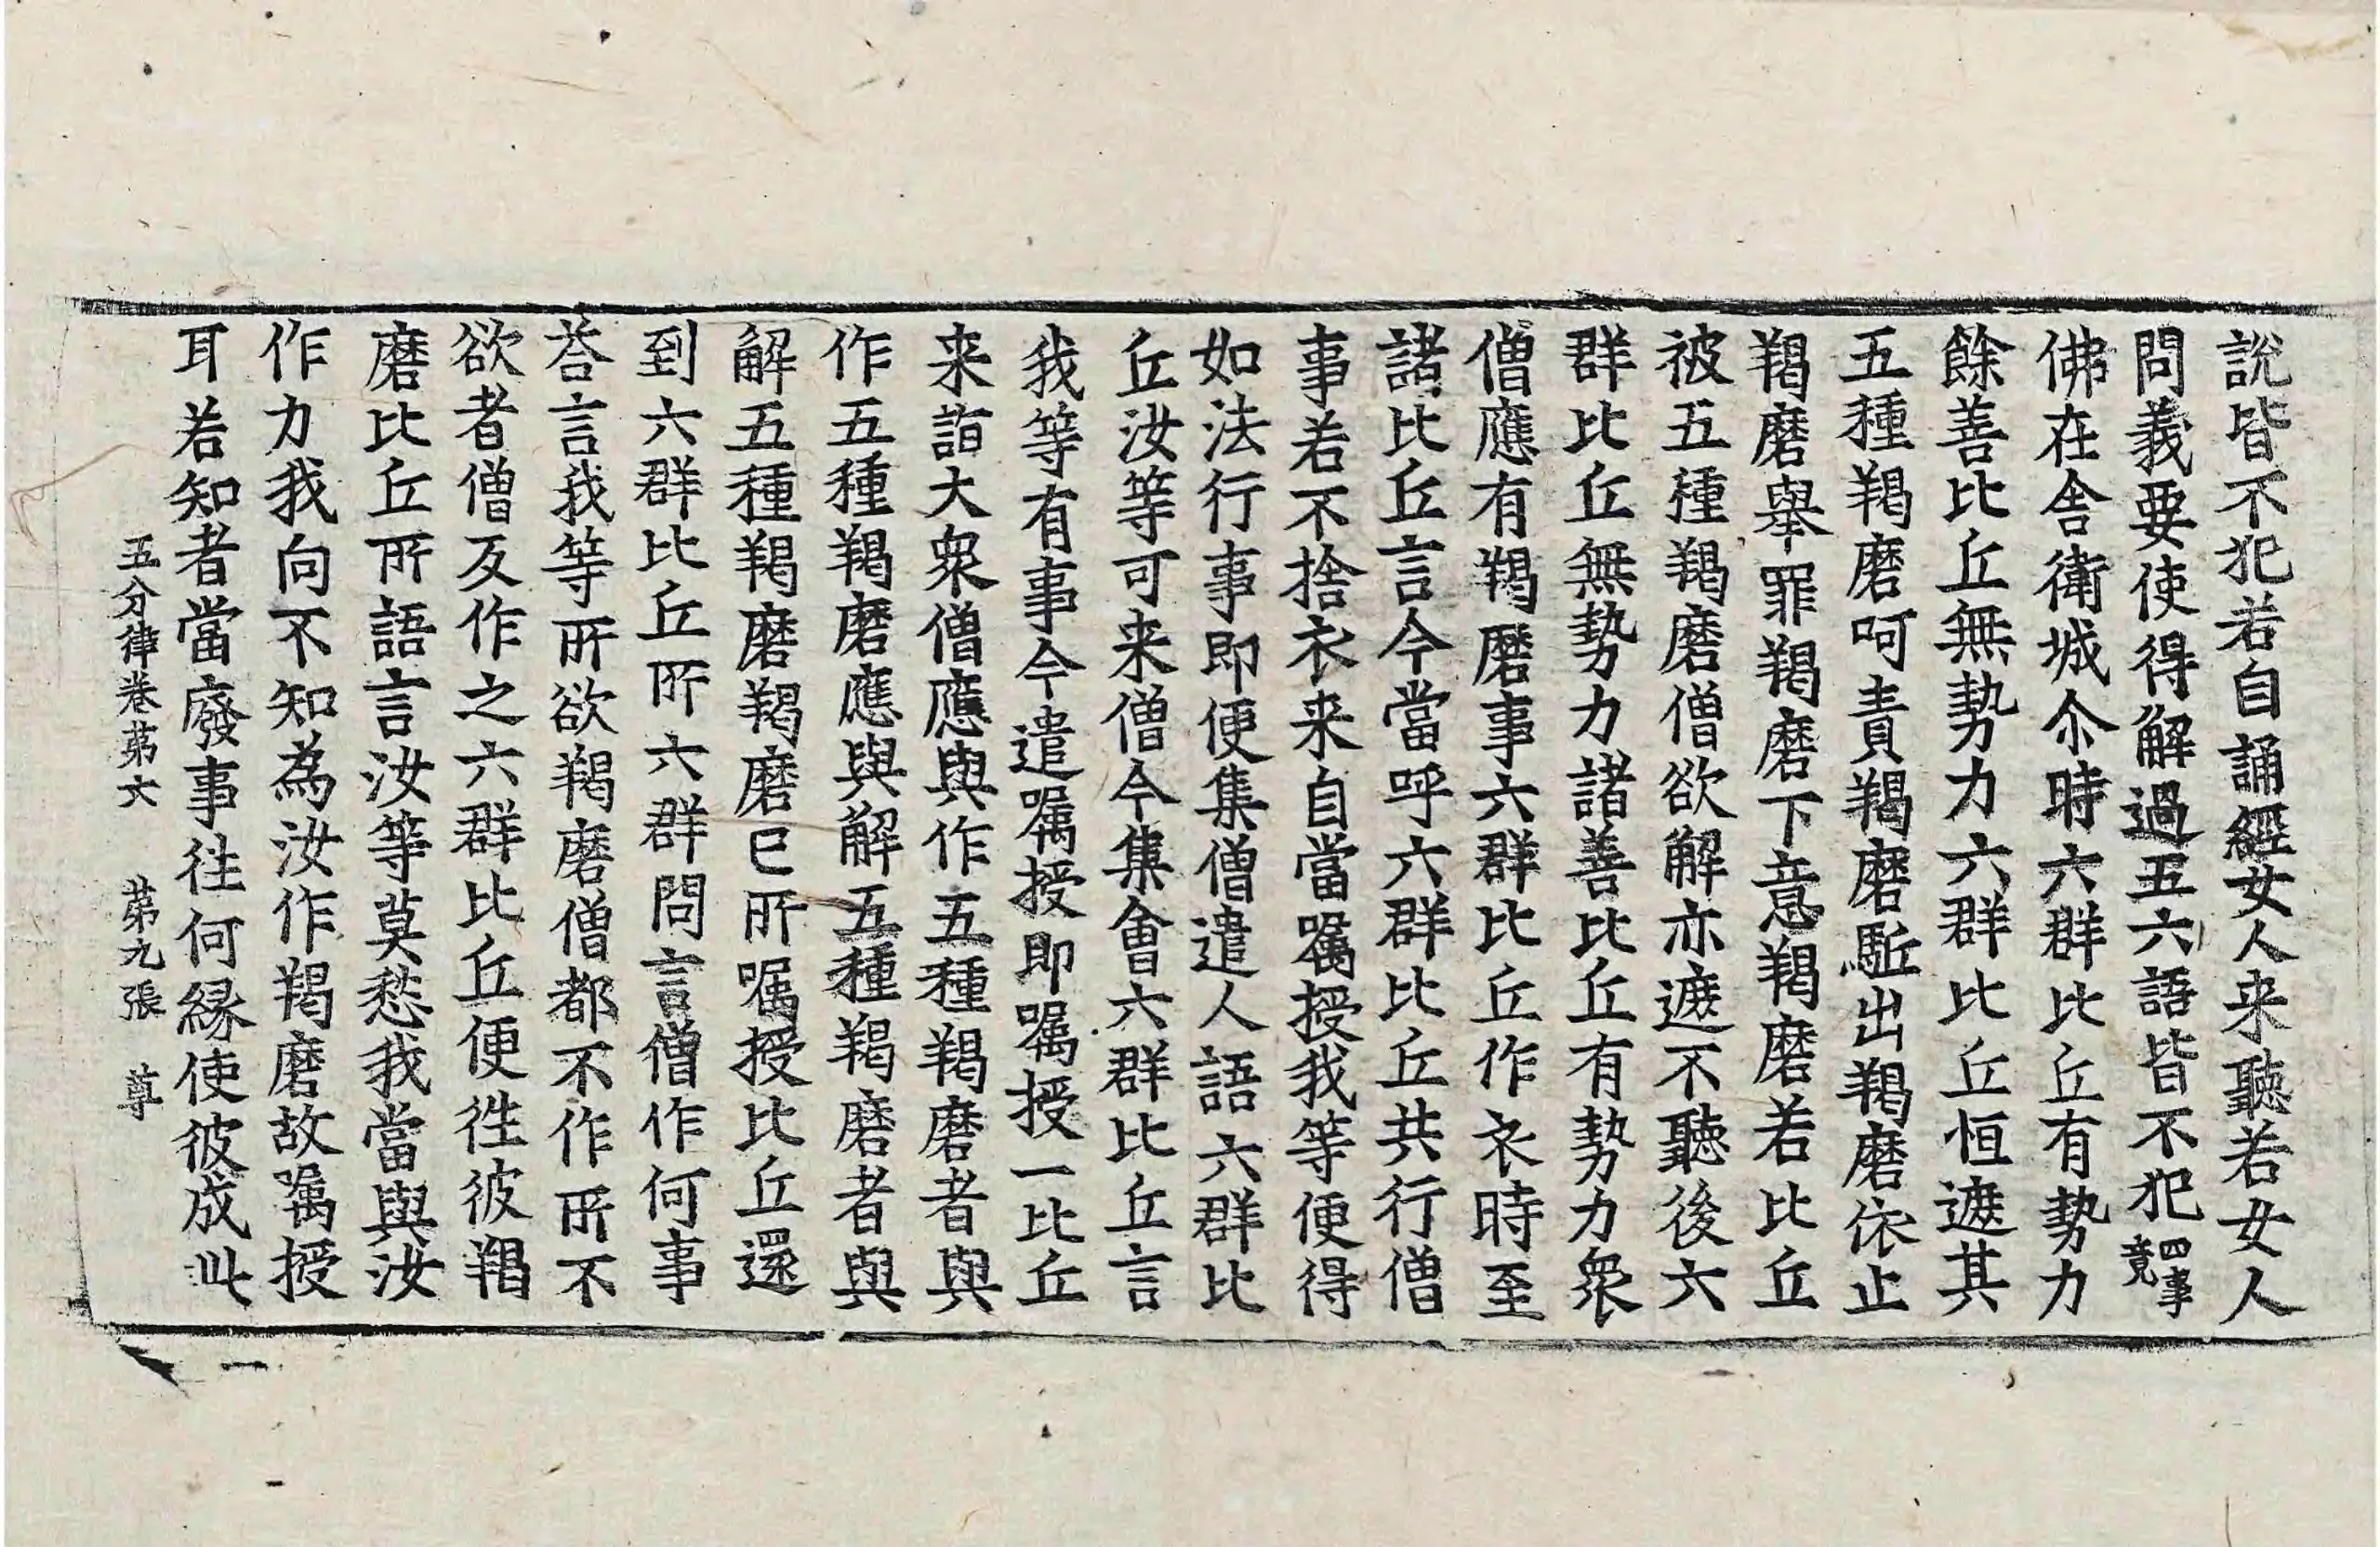 說皆不犯若自誦經女人来聽若女人
問義要使得解過五六語皆不犯四事竟
佛在舍衛城尒時六群比丘有勢力
餘善比丘無勢力六群比丘恒遮其
五種羯磨呵責羯磨駈出羯磨依止
羯磨舉罪羯磨下意羯磨若比丘
彼五種羯磨僧欲解亦遮不聽後六
群比丘無勢力諸善比丘有勢力衆
僧應有羯磨事六群比丘作衣時至
諸比丘言今當呼六群比丘共行僧
事若不捨衣来自當囑授我等便得
如法行事即便集僧遣人語六群比
丘汝等可来僧今集會六群比丘言
我等有事今遣囑授即囑授一比丘
来詣大衆僧應與作五種羯磨者與
作五種羯磨應與解五種羯磨者與
解五種羯磨羯磨已所囑授比丘還
到六群比丘所六群問言僧作何事
荅言我等所欲羯磨僧都不作所不
欲者僧反作之六群比丘便徃彼羯
磨比丘所語言汝等莫愁我當與汝
作力我向不知為汝作羯磨故囑授
耳若知者當廢事徃何緣使彼成此
五分律卷苐六 苐九張 尊
一